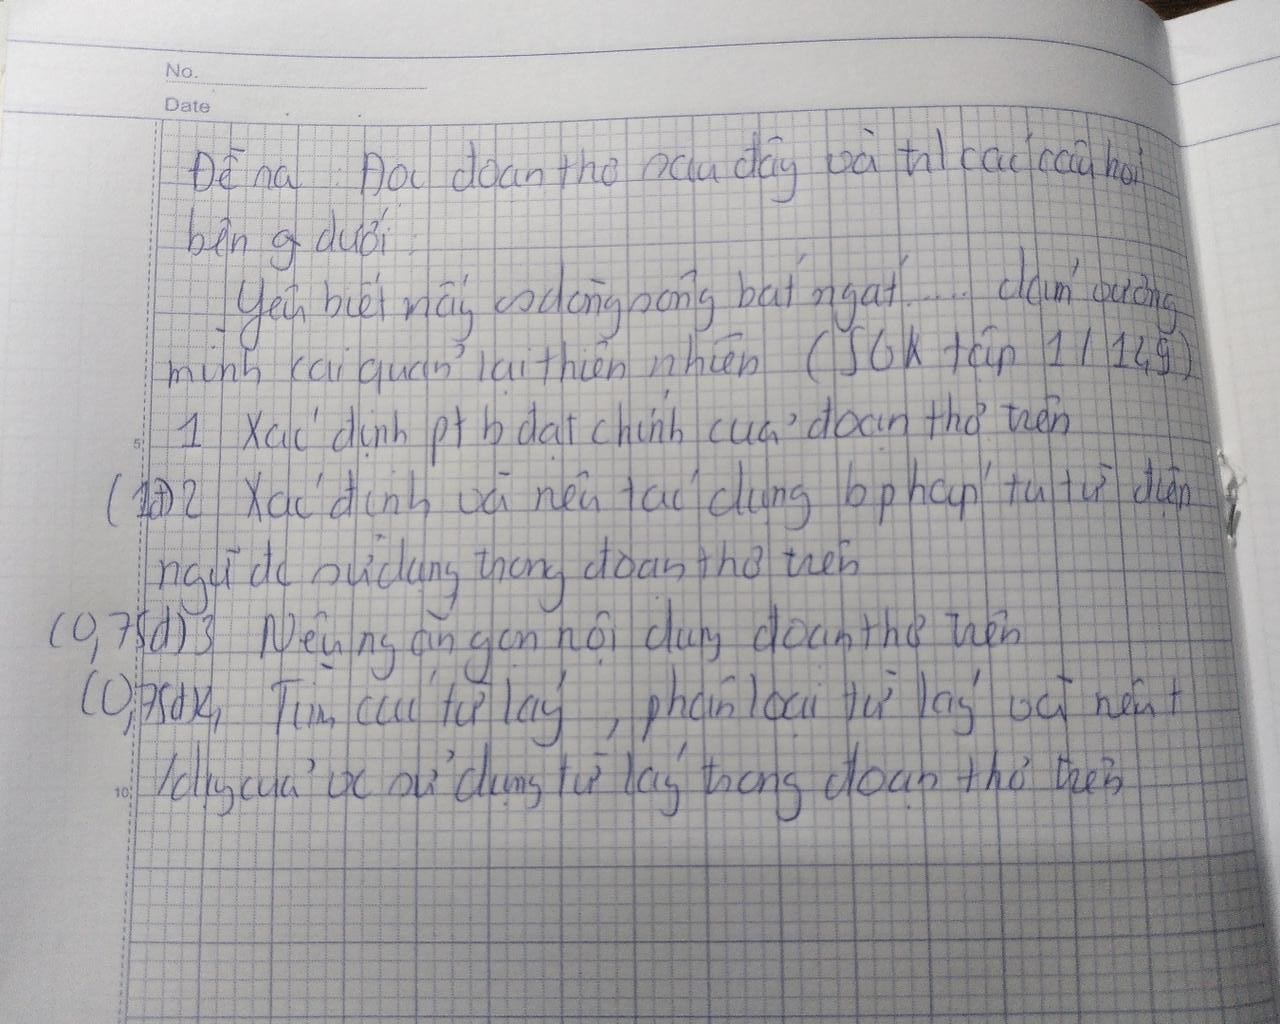 No.
Date
Đề na Đọc đoạn thơ sau đây và tl các câu hỏi
bên g dưới
Yên biết mấy có dòng sông bát ngát ..... đám
minh cai quản lại thiên nhiên (SGK tập 1/149)
5 1 Xác định pt b đạt chính của đoạn thơ trên
(1đ) 2 Xác định và nêu tác dụng b pháp tu từ
ngữ đc sử dụng trong đoạn thơ trên
(0,75đ) 3 Nêu ngắn gọn nội dung đoạn thơ trên
(0,75đ) 4 Tìm các từ láy, phân loại từ láy và nêu t
10 /dụng của vc sử dụng từ láy trong đoạn thơ trên